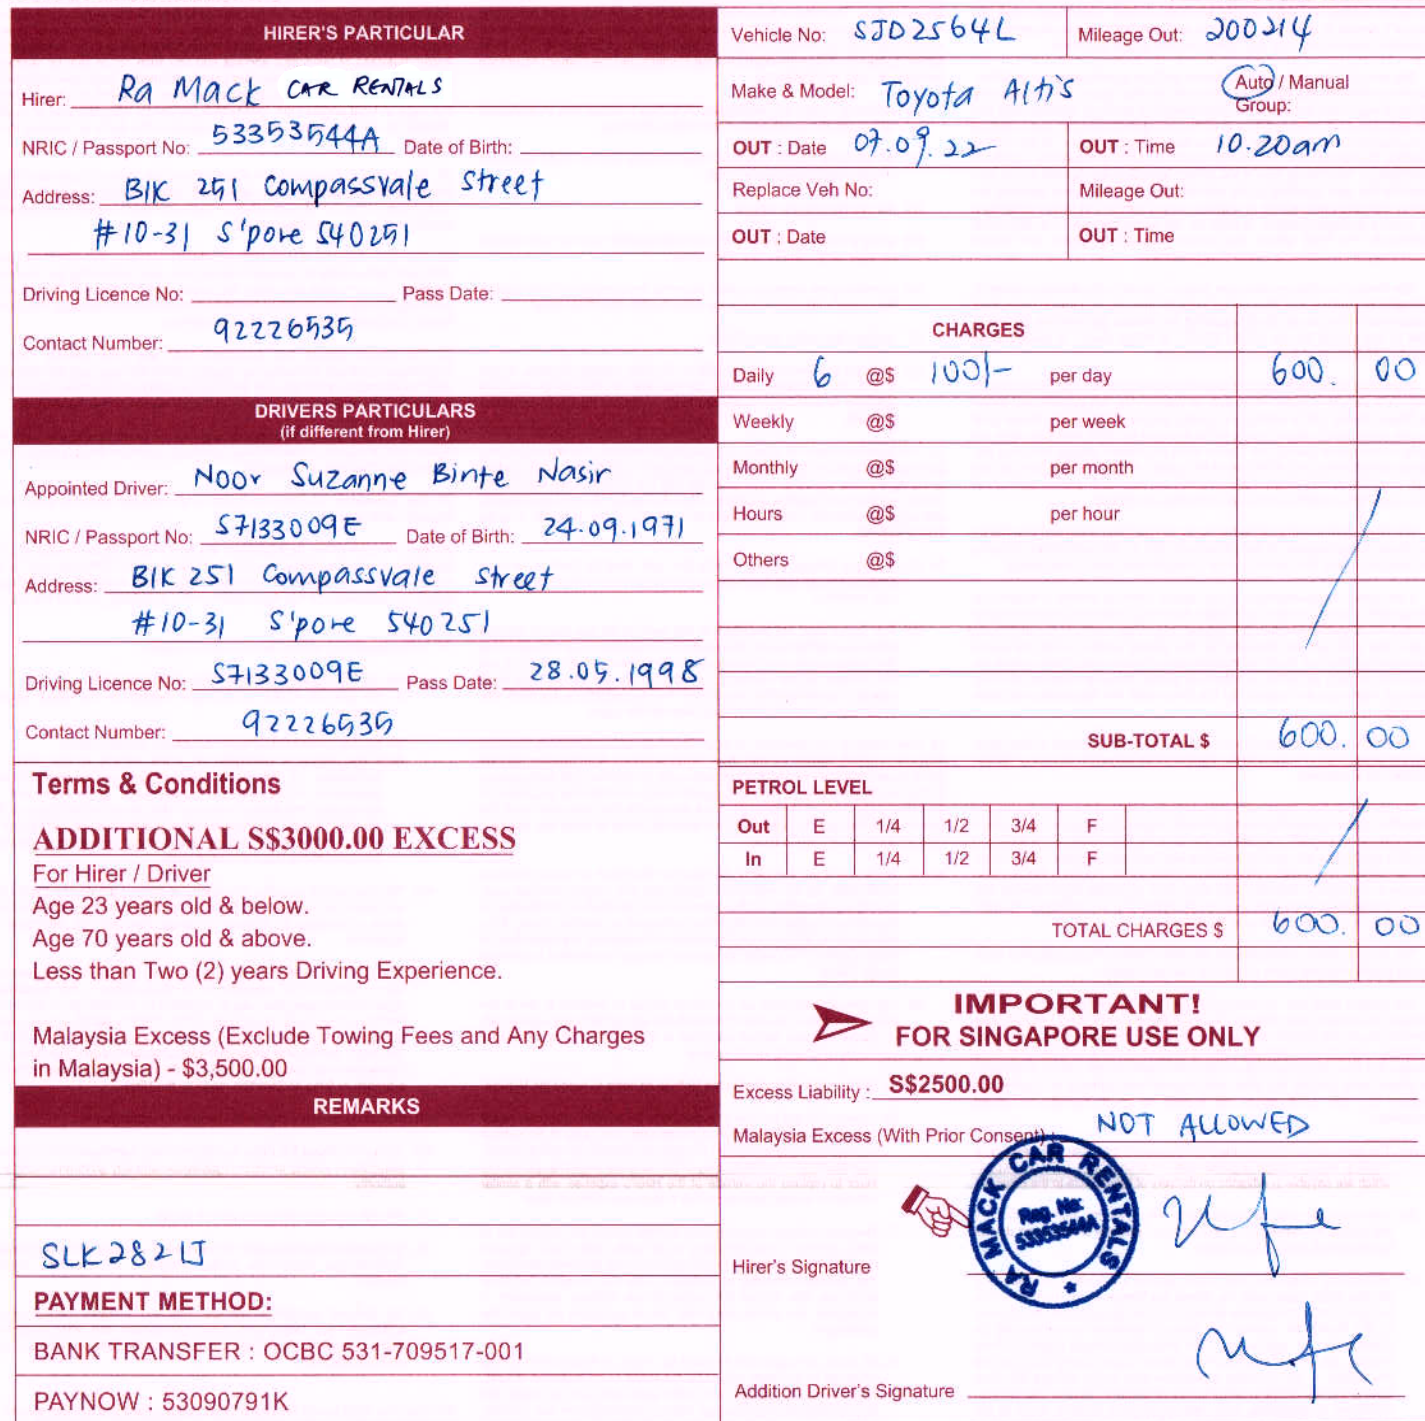 HIRER'S PARTICULAR
Hirer: Ra Mack CAR RENTALS
NRIC / Passport No: 53353544A Date of Birth:
Address: Blk 251 Compassvale Street
#10-31 S'pore 540251
Driving Licence No: Pass Date:
Contact Number: 92226535
DRIVERS PARTICULARS
(if different from Hirer)
Appointed Driver: Noor Suzanne Binte Nasir
NRIC / Passport No: S7133009E Date of Birth: 24.09.1971
Address: Blk 251 Compassvale Street
#10-31 S'pore 540251
Driving Licence No: S7133009E Pass Date: 28.05.1998
Contact Number: 92226535
Terms & Conditions
ADDITIONAL S$3000.00 EXCESS
For Hirer / Driver
Age 23 years old & below.
Age 70 years old & above.
Less than Two (2) years Driving Experience.
Malaysia Excess (Exclude Towing Fees and Any Charges
in Malaysia) - $3,500.00
REMARKS
SLK2821J
PAYMENT METHOD:
BANK TRANSFER : OCBC 531-709517-001
PAYNOW : 53090791K
Vehicle No: SJD2564L Mileage Out: 200214
Make & Model: Toyota Altis Auto / Manual
Group:
OUT : Date 07.09.22 OUT : Time 10.20am
Replace Veh No: Mileage Out:
OUT : Date OUT : Time
CHARGES
Daily 6 @$ 100/- per day 600. 00
Weekly @$ per week
Monthly @$ per month
Hours @$ per hour
Others @$
SUB-TOTAL $ 600. 00
PETROL LEVEL
Out E 1/4 1/2 3/4 F
In E 1/4 1/2 3/4 F
TOTAL CHARGES $ 600. 00
IMPORTANT!
FOR SINGAPORE USE ONLY
Excess Liability : S$2500.00
Malaysia Excess (With Prior Consent) : NOT ALLOWED
RA MACK CAR RENTALS
Reg. No:
53353544A
Hirer's Signature
Addition Driver's Signature